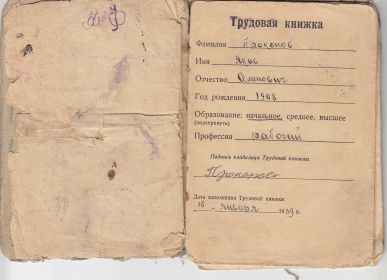 Трудовая книжка
Фамилия Проконов
Имя Яков
Отчество
Год рождения 1908
Образование: начальное, среднее, высшее
(подчеркнуть)
Профессия рабочий
Подпись владельца Трудовой книжки
Дата заполнения Трудовой книжки
16 января 1939 г.